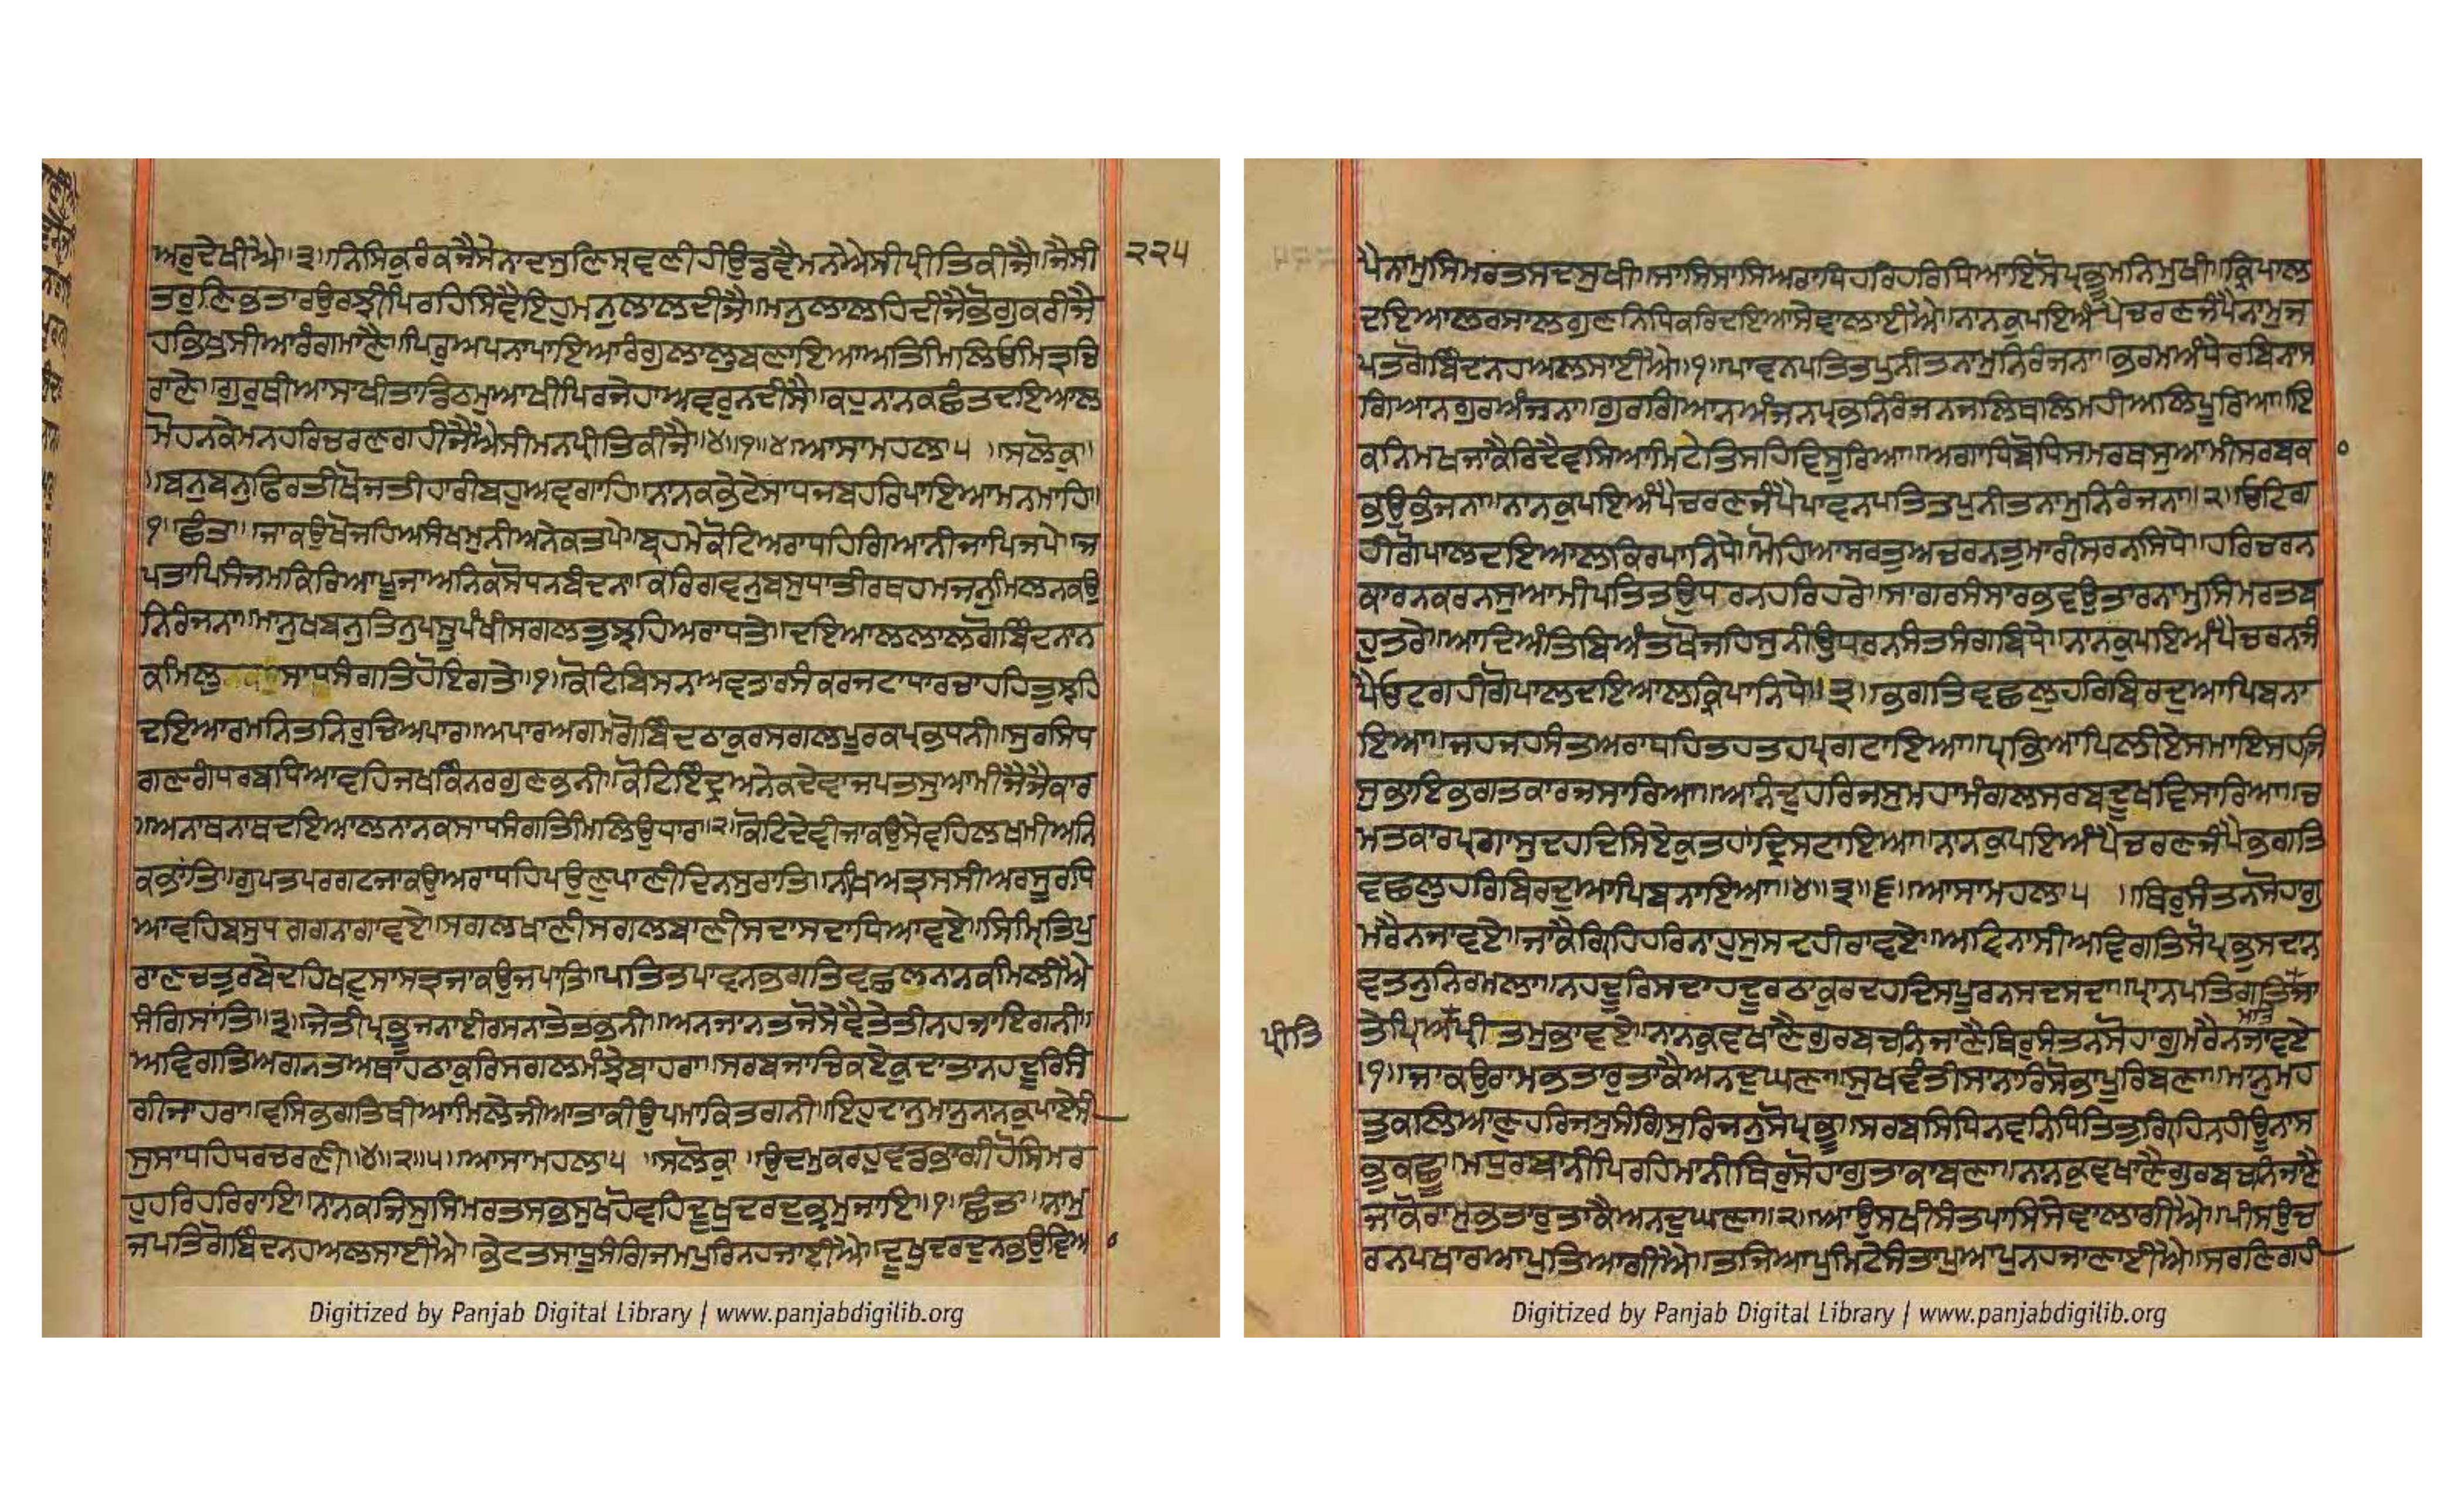 ਅਰੁਦੇਖੀਐ॥੩॥ਨਿਸਿਕੁਰੰਕਜੈਸੇਨਾਦਸੁਣਿਸ੍ਰਵਣੀਹੀਉਡਿਵੈਮਨਐਸੀਪ੍ਰੀਤਿਕੀਜੈ॥ਜੈਸੀ ੨੨੫
ਤਰੁਣਿਭਤਾਰਉਰਝੀਪਿਰਹਿਸਿਵੈਇਹੁਮਨੁਲਾਲਦੀਜੈ॥ਮਨੁਲਾਲਹਿਦੀਜੈਭੋਗੁਕਰੀਜੈ
ਹਭਿਖੁਸੀਆਰੰਗਮਾਣੈ॥ਪਿਰੁਅਪਨਾਪਾਇਆਰੰਗੁਲਾਲੁਬਣਾਇਆਅਤਿਮਿਲਿਓਮਿਤ੍ਰਚਿ
ਰਾਣੇ॥ਗੁਰੁਥੀਆਸਾਖੀਤਾਡਿਠਮੁਆਖੀਪਿਰਜੇਹਾਅਵਰੁਨਦੀਸੈ॥ਕਹੁਨਾਨਕਛੰਤਦਇਆਲ
ਮੋਹਨਕੇਮਨਹਰਿਚਰਣਗਹੀਜੈਐਸੀਮਨਪ੍ਰੀਤਿਕੀਜੈ॥੪॥੧॥੪॥ਆਸਾਮਹਲਾ੫ ॥ਸਲੋਕੁ॥
॥ਬਨੁਬਨੁਫਿਰਤੀਖੋਜਤੀਹਾਰੀਬਹੁਅਵਗਾਹਿ॥ਨਾਨਕਭੇਟੇਸਾਧਜਬਹਰਿਪਾਇਆਮਨਮਾਹਿ॥
੧॥ਛੰਤ॥ਜਾਕਉਖੋਜਹਿਅਸੰਖਮੁਨੀਅਨੇਕਤਪੇ॥ਬ੍ਰਹਮੇਕੋਟਿਅਰਾਧਹਿਗਿਆਨੀਜਾਪਿਜਪੇ॥ਜ
ਪਤਾਪਿਸੰਜਮਕਿਰਿਆਪੂਜਾਅਨਿਕਸੋਧਨਬੰਦਨਾ॥ਕਰਿਗਵਨੁਬਸੁਧਾਤੀਰਥਹਮਜਨੁਮਿਲਨਕਉ
ਨਿਰੰਜਨਾ॥ਮਾਨੁਖਬਨੁਤਿਨੁਪਸੂਪੰਖੀਸਗਲਤੁਝਹਿਅਰਾਧਤੇ॥ਦਇਆਲਲਾਲਗੋਬਿੰਦਨਾਨ
ਕਮਿਲੁ ਸਾਧਸੰਗਤਿਹੋਇਗਤੇ॥੧॥ਕੋਟਿਬਿਸਨਅਵਤਾਰਸੰਕਰਜਟਾਧਾਰਚਾਹਹਿਤੁਝਹਿ
ਦਇਆਰਮਨਿਤਨਿਰੁਚਿਅਪਾਰ॥ਅਪਾਰਅਗਮਗੋਬਿੰਦਠਾਕੁਰਸਗਲਪੂਰਕਪ੍ਰਭਧਨੀ॥ਸੁਰਸਿਧ
ਗਣਗੰਧਰਬਧਿਆਵਹਿਜਖਕਿੰਨਰਗੁਣਭਨੀ॥ਕੋਟਿਇੰਦ੍ਰਅਨੇਕਦੇਵਾਜਪਤਸੁਆਮੀਜੈਜੈਕਾਰ
॥ਅਨਾਥਨਾਥਦਇਆਲਨਾਨਕਸਾਧਸੰਗਤਿਮਿਲਿਉਧਾਰ॥੨॥ਕੋਟਿਦੇਵੀਜਾਕਉਸੇਵਹਿਲਖਮੀਅਨਿ
ਕਭਾਂਤਿ॥ਗੁਪਤਪਰਗਟਜਾਕਉਅਰਾਧਹਿਪਉਣੁਪਾਣੀਦਿਨਸੁਰਾਤਿ॥ਨਖਿਅਤ੍ਰਸਸੀਅਰਸੂਰਧਿ
ਆਵਹਿਬਸੁਧਗਗਨਾਗਾਵਏ॥ਸਗਲਖਾਣੀਸਗਲਬਾਣੀਸਦਾਸਦਾਧਿਆਵਏ॥ਸਿਮ੍ਰਿਤਿਪੁ
ਰਾਣਚਤੁਰਬੇਦਹਿਖਟੁਸਾਸਤ੍ਰਜਾਕਉਜਪਾਤਿ॥ਪਤਿਤਪਾਵਨਭਗਤਿਵਛਲੁਨਾਨਕਮਿਲੀਐ
ਸੰਗਿਸਾਤਿ॥੩॥ਜੇਤੀਪ੍ਰਭੂਜਨਾਈਰਸਨਾਤੇਤਭਨੀ॥ਅਨਜਾਨਤਜੋਸੇਵੈਤੇਤੀਨਹਜਾਇਗਨੀ॥
ਅਵਿਗਤਿਅਗਨਤਅਥਾਹਠਾਕੁਰਿਸਗਲਮੰਝੇਬਾਹਰਾ॥ਸਰਬਜਾਚਿਕਏਕੁਦਾਤਾਨਹਦੂਰਿਸੰ
ਗੀਜਾਹਰਾ॥ਵਸਿਭਗਤਿਥੀਆਮਿਲੇਜੀਆਤਾਕੀਉਪਮਾਕਿਤਗਨੀ॥ਇਹੁਦਾਨੁਮਾਨੁਨਾਨਕੁਪਾਏਸੀ
ਸੁਸਾਧਹਿਧਰਚਰਣੀ॥੪॥੨॥੫॥ਆਸਾਮਹਲਾ੫ ॥ਸਲੋਕ॥ ਉਦਮੁਕਰਹੁਵਡਭਾਗੀਹੋਸਿਮਰ
ਹੁਹਰਿਹਰਿਰਾਇ॥ਨਾਨਕਜਿਸੁਸਿਮਰਤਸਭਸੁਖਹੋਵਹਿਦੂਖੁਦਰਦੁਭ੍ਰਮੁਜਾਇ॥੧॥ਛੰਤ॥ਨਾਮੁ
ਜਪਤਿਗੋਬਿੰਦਨਹਅਲਸਾਈਐ॥ਭੇਟਤਸਾਧੂਸੰਗਿਜਮਪੁਰਿਨਹਜਾਈਐ॥ਦੂਖੁਦਰਦੁਨਭਉਵਿਆ
ਪੈਨਾਮੁਸਿਮਰਤਸਦਸੁਖੀ॥ਸਾਸਿਸਾਸਿਅਰਾਧਿਹਰਿਹਰਿਧਿਆਇਸੋਪ੍ਰਭੂਮਨਿਮੁਖੀ॥ਕ੍ਰਿਪਾਲ
ਦਇਆਲਰਸਾਲਗੁਣਨਿਧਿਕਰਿਦਇਆਸੇਵਾਲਾਈਐ॥ਨਾਨਕੁਪਇਅੰਪੈਚਰਣਜੰਪੈਨਾਮੁਜ
ਪਤਗੋਬਿੰਦਨਹਅਲਸਾਈਐ॥੧॥ਪਾਵਨਪਤਿਤਪੁਨੀਤਨਾਮੁਨਿਰੰਜਨਾ॥ਭਰਮਅੰਧੇਰਬਿਨਾਸ
ਗਿਆਨਗੁਰਅੰਜਨਾ॥ਗੁਰਗਿਆਨਅੰਜਨਪ੍ਰਭਨਿਰੰਜਨਜਲਿਥਲਿਮਹੀਅਲਿਪੂਰਿਆ॥ਇ
ਕਨਿਮਖਜਾਕੈਰਿਦੈਵਸਿਆਮਿਟੇਤਿਸਹਿਵਿਸੂਰਿਆ॥ਅਗਾਧਿਬੋਧਿਸਮਰਥਸੁਆਮੀਸਰਬਕ
ਭਉਭੰਜਨਾ॥ਨਾਨਕੁਪਇਅੰਪੈਚਰਣਜੰਪੈਪਾਵਨਪਤਿਤਪੁਨੀਤਨਾਮੁਨਿਰੰਜਨਾ॥੨॥ਓਟਿਗ
ਹੀਗੋਪਾਲਦਇਆਲਕਿਰਪਾਨਿਧੇ॥ਮੋਹਿਆਸਰਤੁਅਚਰਨਤੁਮਾਰੀਸਰਨਸਿਧੇ॥ਹਰਿਚਰਨ
ਕਾਰਨਕਰਨਸੁਆਮੀਪਤਿਤਉਧਰਨਹਰਿਹਰੇ॥ਸਾਗਰਸੰਸਾਰਭਵਉਤਾਰਨਾਮੁਸਿਮਰਤਬ
ਹੁਤਰੇ॥ਆਦਿਅੰਤਿਬਿਅੰਤਖੋਜਹਿਸੁਨੀਉਧਰਨਸੰਤਸੰਗਬਿਧੇ॥ਨਾਨਕੁਪਇਅੰਪੈਚਰਨਜੰ
ਪੈਓਟਗਹੀਗੋਪਾਲਦਇਆਲਕ੍ਰਿਪਾਨਿਧੇ॥੩॥ਭਗਤਿਵਛਲੁਹਰਿਬਿਰਦੁਆਪਿਬਨਾ
ਇਆ॥ਜਹਜਹਸੰਤਅਰਾਧਹਿਤਹਤਹਪ੍ਰਗਟਾਇਆ॥ਪ੍ਰਭਿਆਪਿਲੀਏਸਮਾਇਸਹਜਿ
ਸੁਭਾਇਭਗਤਕਾਰਜਸਾਰਿਆ॥ਆਨੰਦੁਹਰਿਜਸੁਮਹਾਮੰਗਲਸਰਬਦੂਖਵਿਸਾਰਿਆ॥ਚ
ਮਤਕਾਰਪ੍ਰਗਾਸੁਦਹਦਿਸਿਏਕੁਤਹਾਂਦ੍ਰਿਸਟਾਇਆ॥ਨਾਨਕੁਪਇਅੰਪੈਚਰਣਜੰਪੈਭਗਤਿ
ਵਛਲੁਹਰਿਬਿਰਦੁਆਪਿਬਨਾਇਆ॥੪॥੩॥੬॥ਆਸਾਮਹਲਾ੫ ॥ਥਿਰੁਸੰਤਨਸੋਹਾਗੁ
ਮਰੈਨਜਾਵਏ॥ਜਾਕੈਗ੍ਰਿਹਿਹਰਿਨਾਹੁਸੁਸਦਹੀਰਾਵਏ॥ਅਵਿਨਾਸੀਅਵਿਗਤਿਸੋਪ੍ਰਭੁਸਦਨ
ਵਤਨੁਨਿਰਮਲਾ॥ਨਹਦੂਰਿਸਦਾਹਦੂਰਠਾਕੁਰਦਹਦਿਸਪੂਰਨਸਦਸਦਾ॥ਪ੍ਰਾਨਪਤਿਗਤਿਜਾ ਮਤਿ
ਪ੍ਰੀਤਿ ਤੇਪ੍ਰਿਅਪ੍ਰੀਤਮੁਭਾਵਏ॥ਨਾਨਕੁਵਖਾਣੈਗੁਰਬਚਨਿਜਾਣੈਥਿਰੁਸੰਤਨਸੋਹਾਗੁਮਰੈਨਜਾਵਏ
॥੧॥ਜਾਕਉਰਾਮਭਤਾਰੁਤਾਕੈਅਨਦੁਘਣਾ॥ਸੁਖਵੰਤੀਸਾਨਾਰਿਸੋਭਾਪੂਰਿਬਣਾ॥ਮਾਨੁਮਹ
ਤੁਕਲਿਆਣੁਹਰਿਜਸੁਸੰਗਿਸੁਰਿਜਨੁਸੋਪ੍ਰਭੂ॥ਸਰਬਸਿਧਿਨਵਨਿਧਿਤਿਤੁਗ੍ਰਿਹਿਨਹੀਊਨਾਸ
ਭੁਕਛੂ॥ਮਧੁਰਬਾਨੀਪਿਰਹਿਮਾਨੀਥਿਰੁਸੋਹਾਗੁਤਾਕਾਬਣਾ॥ਨਾਨਕੁਵਖਾਣੈਗੁਰਬਚਨਿਜਾਣੈ
ਜਾਕੋਰਾਮੁਭਤਾਰੁਤਾਕੈਅਨਦੁਘਣਾ॥੨॥ਆਉਸਖੀਸੰਤਪਾਸਿਸੇਵਾਲਾਗੀਐ॥ਪੀਸਉਚ
ਰਨਪਖਾਰਆਪੁਤਿਆਗੀਐ॥ਤਜਿਆਪੁਮਿਟੈਸੰਤਾਪੁਆਪੁਨਹਜਾਣਾਈਐ॥ਸਰਣਿਗਹੀ
Digitized by Panjab Digital Library | www.panjabdigilib.org
Digitized by Panjab Digital Library | www.panjabdigilib.org